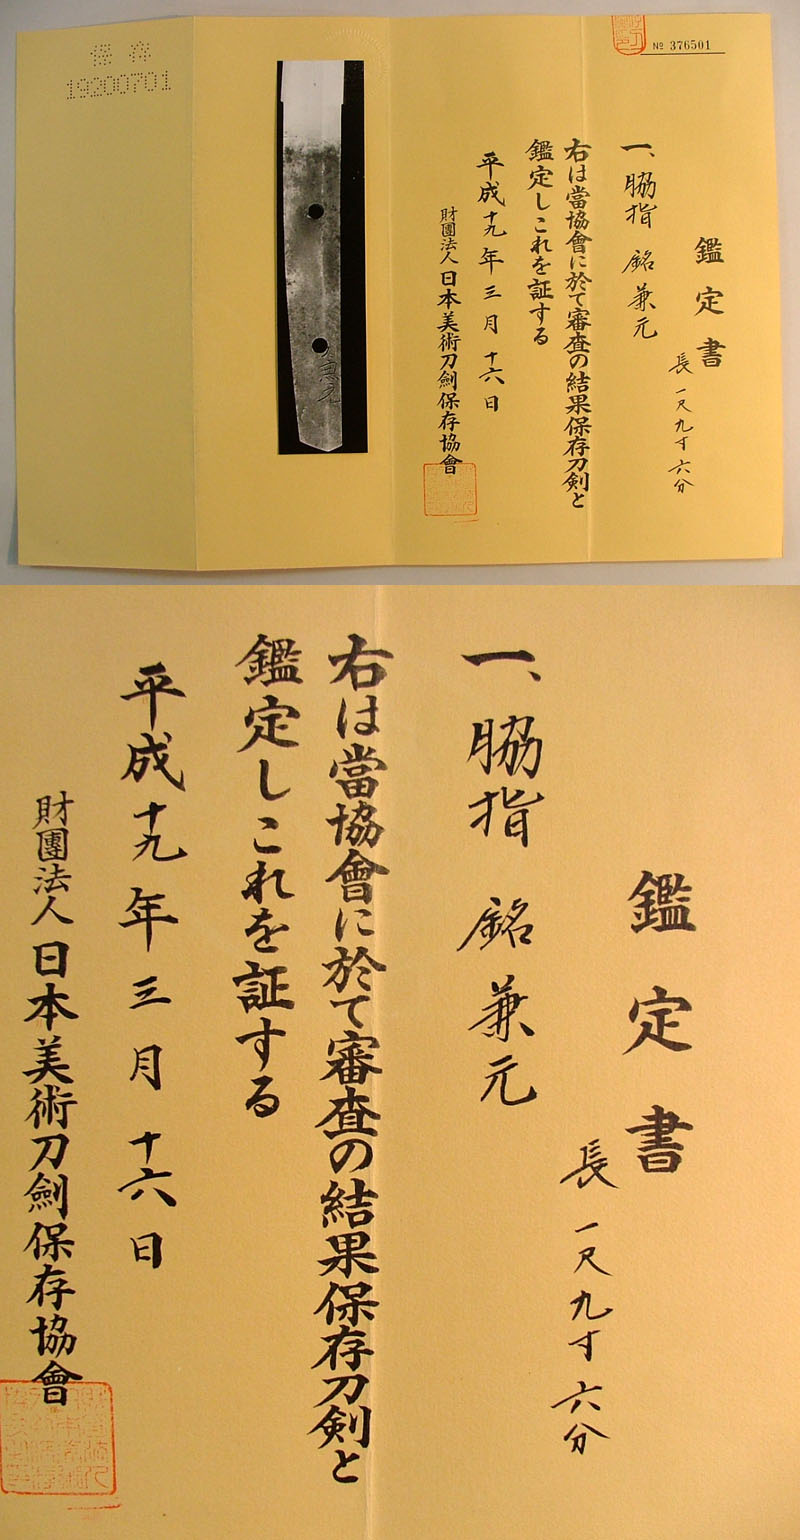 保存
19200701
№ 376501
鑑定書
一、脇指 銘 兼元
長 一尺九寸六分
右は當協會に於て審査の結果保存刀剣と
鑑定しこれを証する
平成十九年三月十六日
財團法人 日本美術刀劍保存協會
兼元
鑑定書
一、脇指 銘 兼元
長 一尺九寸六分
右は當協會に於て審査の結果保存刀剣と
鑑定しこれを証する
平成十九年三月十六日
財團法人 日本美術刀劍保存協會